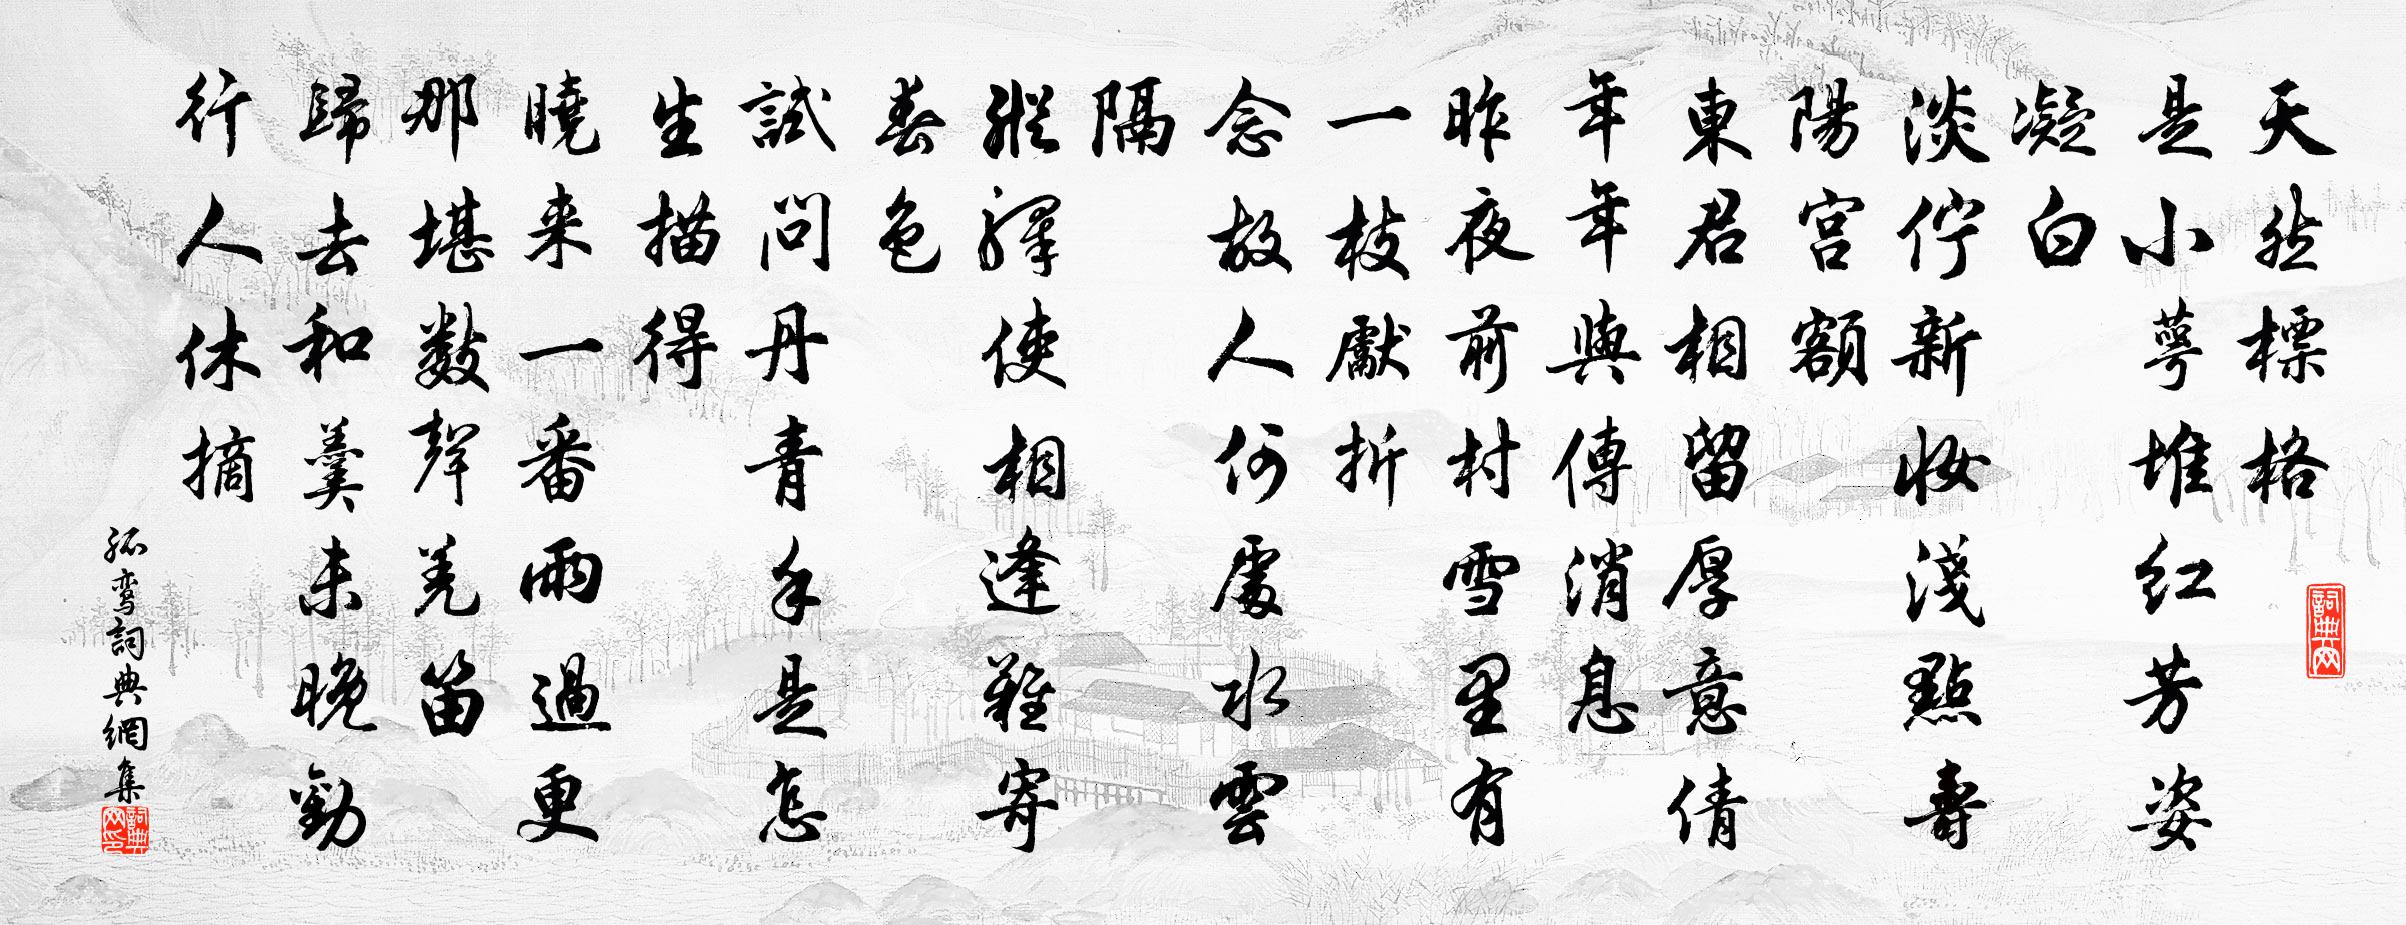 天然標格
是小萼堆红芳姿
凝白
淡佇新妝淺點壽
陽宫額
東君相留厚意倩
年年與傳消息
昨夜前村雪里有
一枝獻折
念故人何處水雲
隔
縱驛使相逢難寄
春色
試問丹青手是怎
生描得
曉来一番雨過更
那堪數聲羌笛
歸去和羹未晚勸
行人休摘
孤鸾詞典網集
詞典网
詞典网印